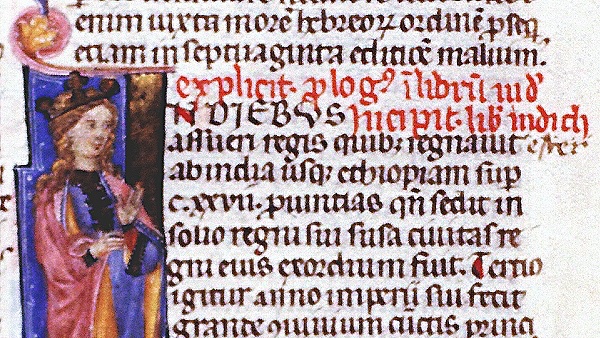 enim iuxta morē hebreoꝝ ordinē p̄seq
etiam in septuaginta editiōe malium.
explicit. p̄logꝰ ī librū iud̄
N DIEBVS Incipit. lib̄ iudich
assueri regis quib; regnauit ester
ab india usqꝫ ethiopiam sup̄
c.xxvii. ꝓuintias qn̄ sedit in
solio regni sui susa ciuitas re
gni eius exordium fuit. Tertio
igitur anno imperii sui fecit
grande ꝯuiuium cūctis princi